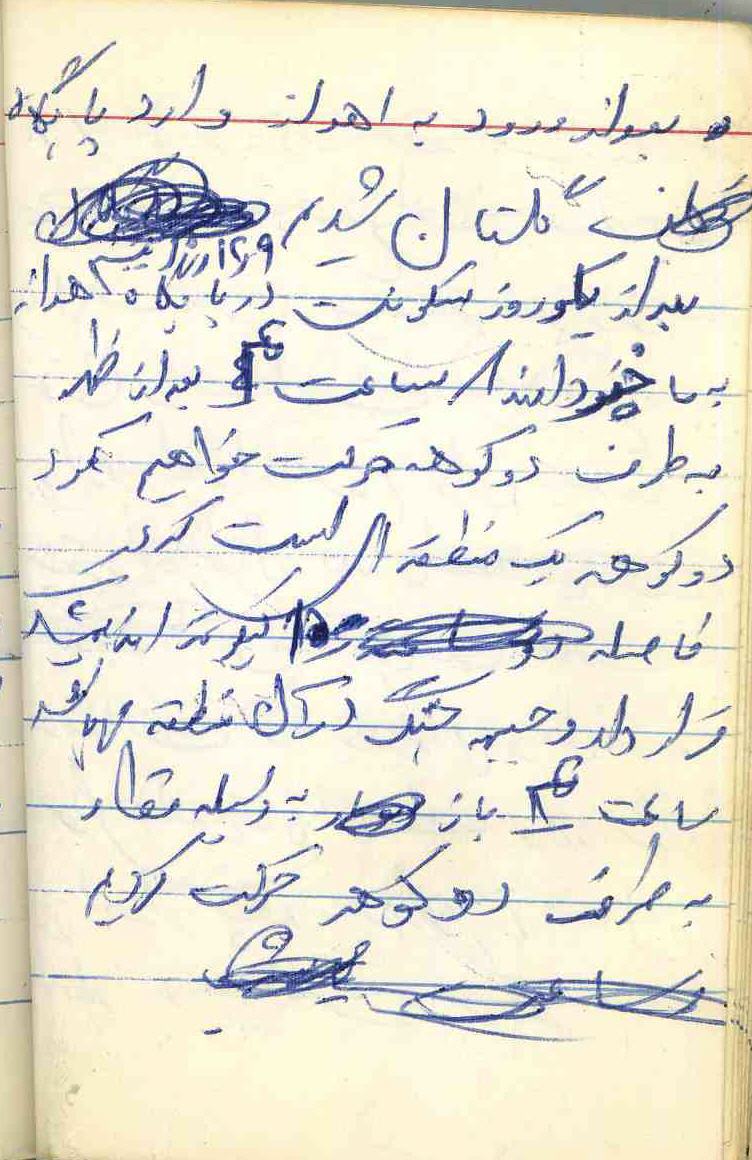 بعد از ورود به اهواز وارد پایگاه
گلستان شدیم
بعد از یکی دو روز سکونت در پایگاه اهواز
به ما خبر دادند ساعت ۴ بعد از ظهر
به طرف دوکوهه حرکت خواهیم کرد
دوکوهه یک منطقه ای است که در
فاصله کیلومتر اندیمشک
قرار دارد و جبهه جنگ در آن منطقه
ساعت ۴ باز به وسیله قطار
به طرف دوکوهه حرکت کردیم